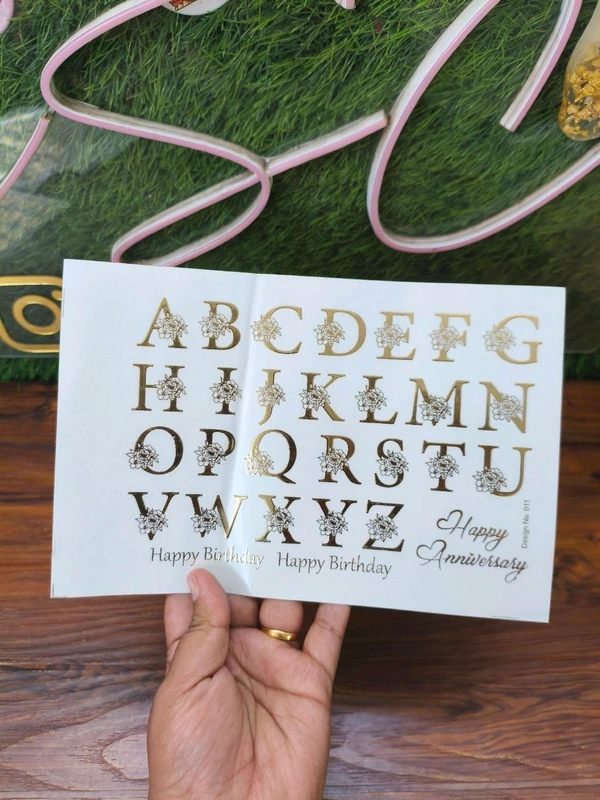 A B C D E F G
H I J K L M N
O P Q R S T U
V W X Y Z
Happy Birthday Happy Birthday
Happy
Anniversary
Design No. 011